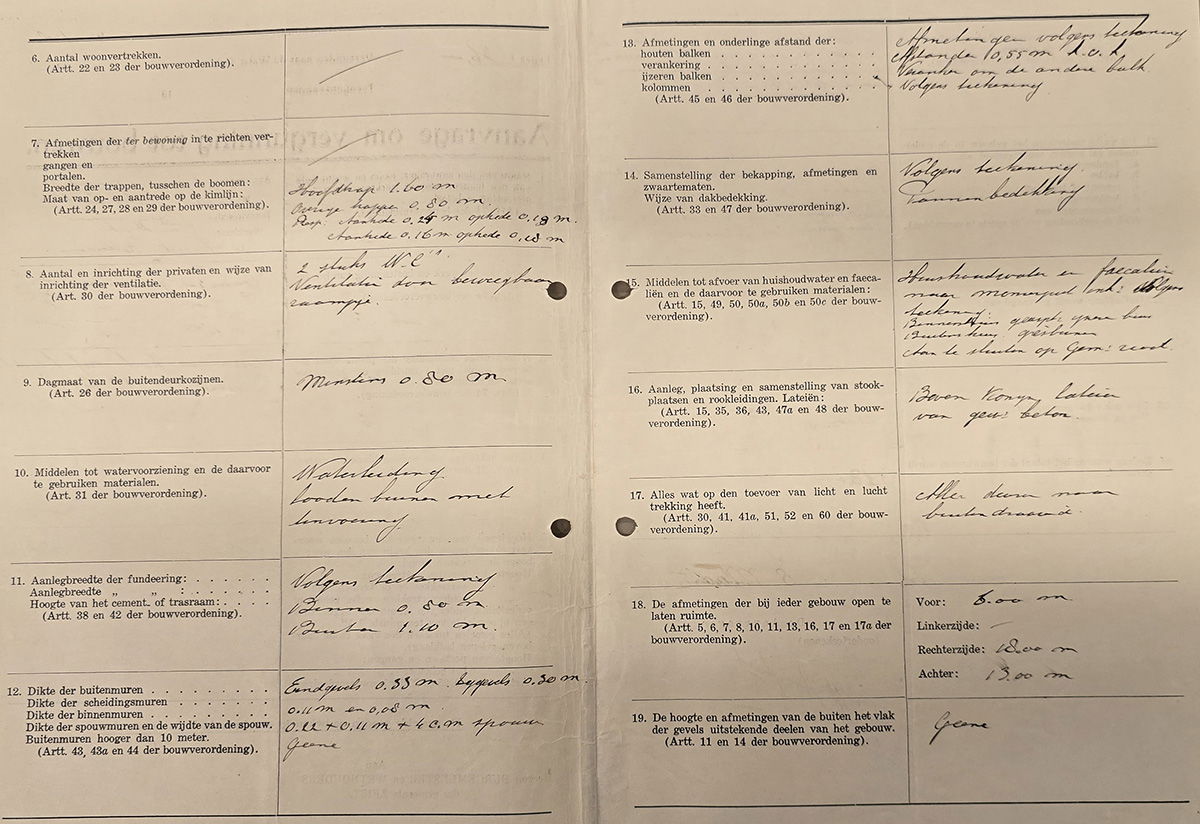 6. Aantal woonvertrekken.
(Artt. 22 en 23 der bouwverordening).
7. Afmetingen der ter bewoning in te richten ver-
trekken
gangen en
portalen.
Breedte der trappen, tusschen de boomen:
Maat van op- en aantrede op de kimlijn:
(Artt. 24, 27, 28 en 29 der bouwverordening).
Hoofdtrap 1.60 m
Overige trappen 0.80 m.
Resp. Aantrede 0.24 m optrede 0.18 m.
Aantrede 0.16 m optrede 0.18 m
8. Aantal en inrichting der privaten en wijze van
inrichting der ventilatie.
(Art. 30 der bouwverordening).
2 stuks W.C's
Ventilatie door beweegbaar
raampje.
9. Dagmaat van de buitendeurkozijnen.
(Art. 26 der bouwverordening).
Minstens 0.80 m
10. Middelen tot watervoorziening en de daarvoor
te gebruiken materialen.
(Art. 31 der bouwverordening).
Waterleiding
looden buizen met
tinvoering
11. Aanlegbreedte der fundeering: . . . . . .
Aanlegbreedte „ „ : . . . . . . .
Hoogte van het cement- of trasraam: . . . .
(Artt. 38 en 42 der bouwverordening).
Volgens teekening
Binnen 0.80 m
Buiten 1.10 m.
12. Dikte der buitenmuren . . . . . . . . .
Dikte der scheidingsmuren . . . . . . . .
Dikte der binnenmuren . . . . . . . . .
Dikte der spouwmuren en de wijdte van de spouw.
Buitenmuren hooger dan 10 meter.
(Artt. 43, 43a en 44 der bouwverordening).
Eindgevels 0.33 m 0.30 m.
0.11 m en 0,08 m.
0.22 + 0.11 m + 4 c.m spouw
Geene
13. Afmetingen en onderlinge afstand der:
houten balken . . . . . . . . . .
verankering . . . . . . . . . . .
ijzeren balken . . . . . . . . . .
kolommen . . . . . . . . . . . .
(Artt. 45 en 46 der bouwverordening).
Afmetingen volgens teekening
Afstanden 0,55 m h.o.h.
Veranker om de andere balk.
Volgens teekening
14. Samenstelling der bekapping, afmetingen en
zwaartematen.
Wijze van dakbedekking.
(Artt. 33 en 47 der bouwverordening).
Volgens teekening.
Pannenbedekking
15. Middelen tot afvoer van huishoudwater en faeca-
liën en de daarvoor te gebruiken materialen:
(Artt. 15, 49, 50, 50a, 50b en 50c der bouw-
verordening).
Huishoudwater en faecaliën
naar volgens
teekening.
Binnenshuis buis
Buitenshuis gresbuizen
Aan te sluiten op Gem: riool.
16. Aanleg, plaatsing en samenstelling van stook-
plaatsen en rookleidingen. Lateiën:
(Artt. 15, 35, 36, 43, 47a en 48 der bouw-
verordening).
Boven Kozijn lateien
van gew: beton.
17. Alles wat op den toevoer van licht en lucht
trekking heeft.
(Artt. 30, 41, 41a, 51, 52 en 60 der bouw-
verordening).
Alle deuren naar
buitendraaiend.
18. De afmetingen der bij ieder gebouw open te
laten ruimte.
(Artt. 5, 6, 7, 8, 10, 11, 13, 16, 17 en 17a der
bouwverordening).
Voor: 6.00 m
Linkerzijde: —
Rechterzijde: 18.00 m
Achter: 13.00 m
19. De hoogte en afmetingen van de buiten het vlak
der gevels uitstekende deelen van het gebouw.
(Artt. 11 en 14 der bouwverordening).
Geene